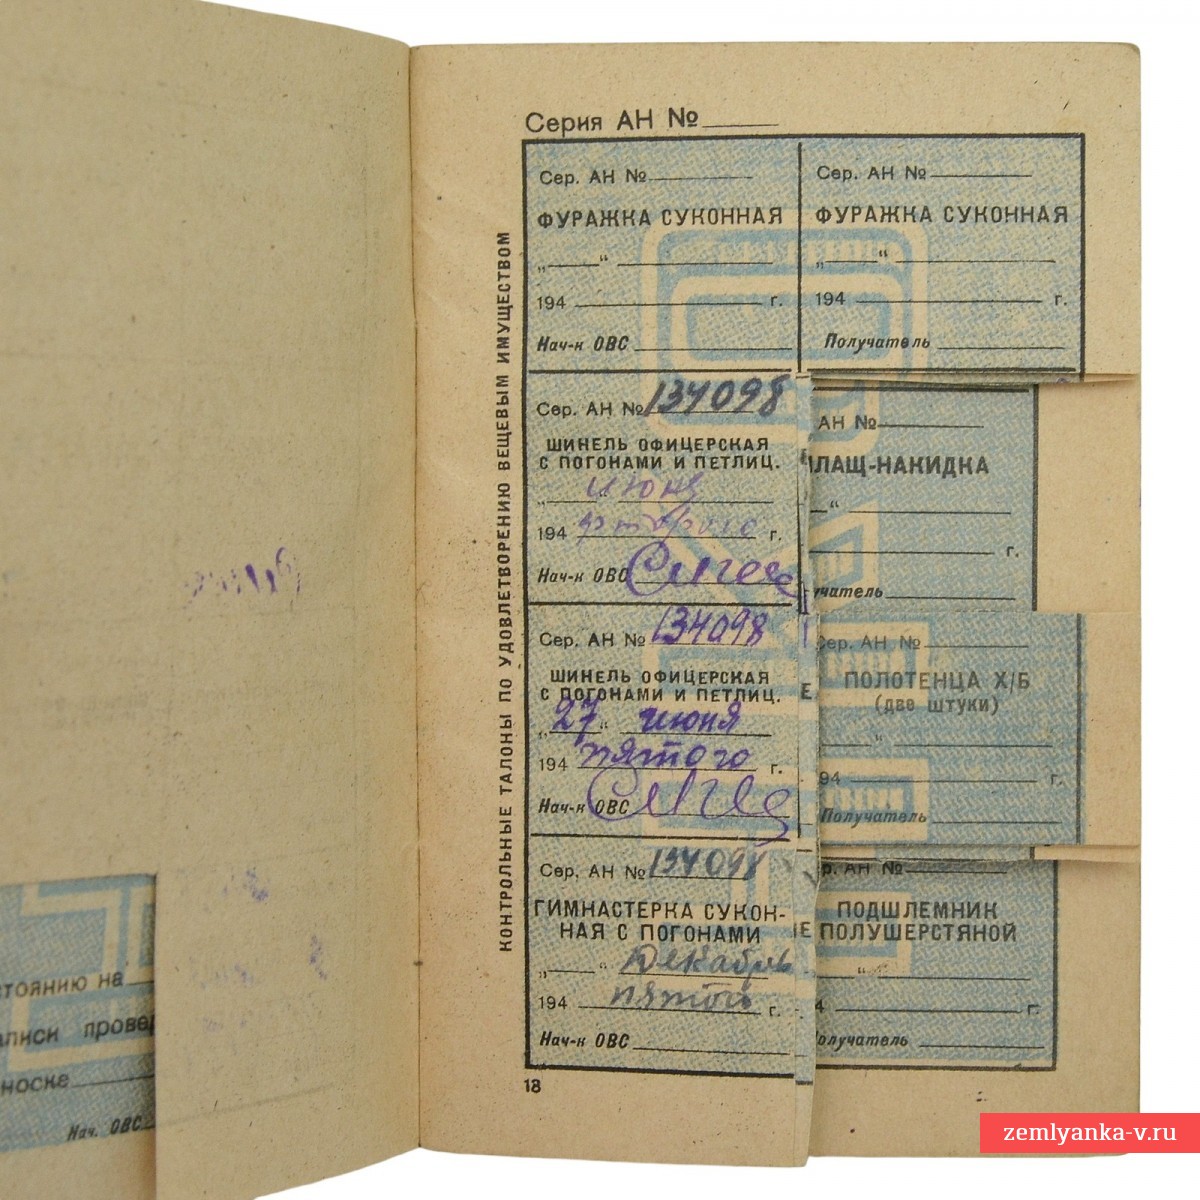 Серия АН №
КОНТРОЛЬНЫЕ ТАЛОНЫ ПО УДОВЛЕТВОРЕНИЮ ВЕЩЕВЫМ ИМУЩЕСТВОМ
Сер. АН №
ФУРАЖКА СУКОННАЯ
„ “
194 г.
Нач-к ОВС
Сер. АН №
ФУРАЖКА СУКОННАЯ
„ “
194 г.
Получатель
Сер. АН № 134098
ШИНЕЛЬ ОФИЦЕРСКАЯ
С ПОГОНАМИ И ПЕТЛИЦ.
„ “ июня
194 второго г.
Нач-к ОВС
АН №
ПЛАЩ-НАКИДКА
“
г.
лучатель
Сер. АН № 134098
ШИНЕЛЬ ОФИЦЕРСКАЯ
С ПОГОНАМИ И ПЕТЛИЦ.
„27“ июня
194 пятого г.
Нач-к ОВС
Сер. АН №
Е ПОЛОТЕНЦА Х/Б
(две штуки)
“
94 г.
Получатель
Сер. АН № 134098
ГИМНАСТЕРКА СУКОН-
НАЯ С ПОГОНАМИ
„ “ Декабрь
194 пятой г.
Нач-к ОВС
р. АН №
ПОДШЛЕМНИК
ІЕ ПОЛУШЕРСТЯНОЙ
“
4 г.
олучатель
18
стоянию на
аписи провер
носке
Нач. ОВС
zemlyanka-v.ru